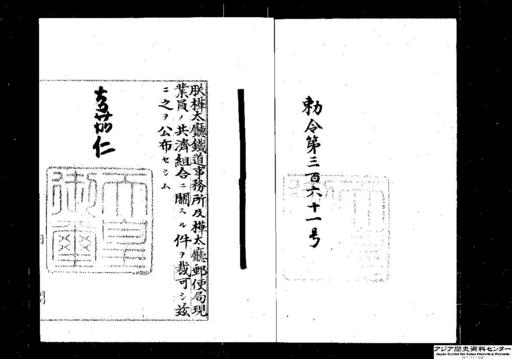 勅令第三百六十一号
朕樺太廳鐵道事務所及樺太廳郵便局現
業員ノ共濟組合ニ關スル件ヲ裁可シ茲
ニ之ヲ公布セシム
嘉仁
天皇
御璽
アジア歴史資料センター
Japan Center for Asian Historical Records